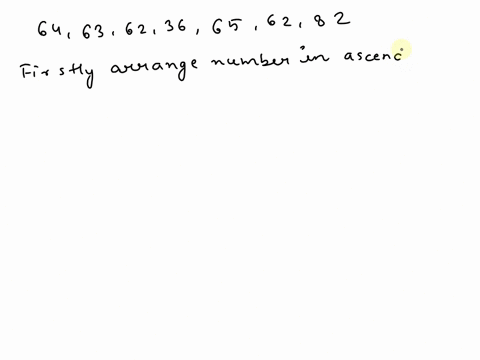 64, 63, 62, 36, 65, 62, 82
Firstly arrange number in ascenc